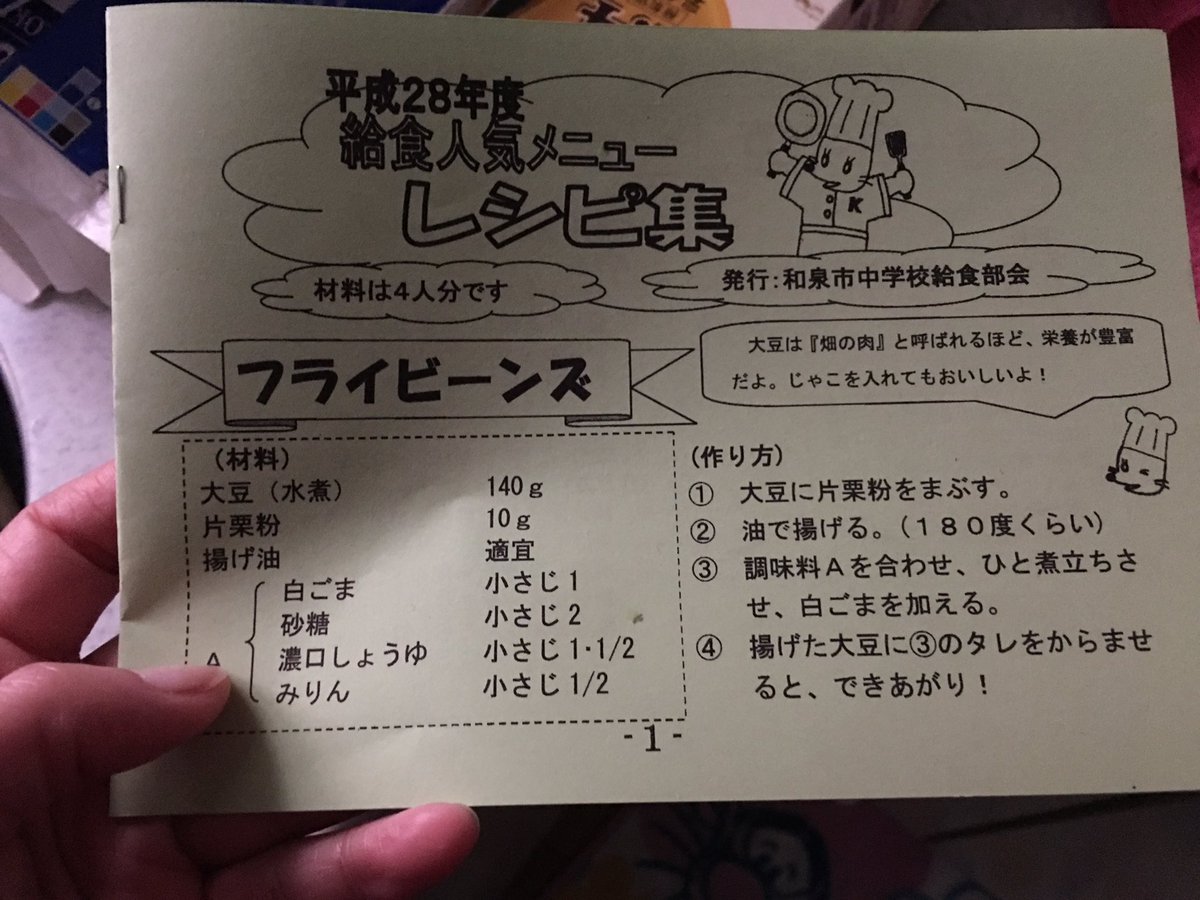 平成28年度
給食人気メニュー
レシピ集
K
材料は4人分です
発行：和泉市中学校給食部会
フライビーンズ
大豆は『畑の肉』と呼ばれるほど、栄養が豊富
だよ。じゃこを入れてもおいしいよ！
（材料）
大豆（水煮） 140ｇ
片栗粉 10ｇ
揚げ油 適宜
白ごま 小さじ1
砂糖 小さじ2
濃口しょうゆ 小さじ1・1/2
A
みりん 小さじ1/2
（作り方）
① 大豆に片栗粉をまぶす。
② 油で揚げる。（１８０度くらい）
③ 調味料Ａを合わせ、ひと煮立ちさ
せ、白ごまを加える。
④ 揚げた大豆に③のタレをからませ
ると、できあがり！
-1-